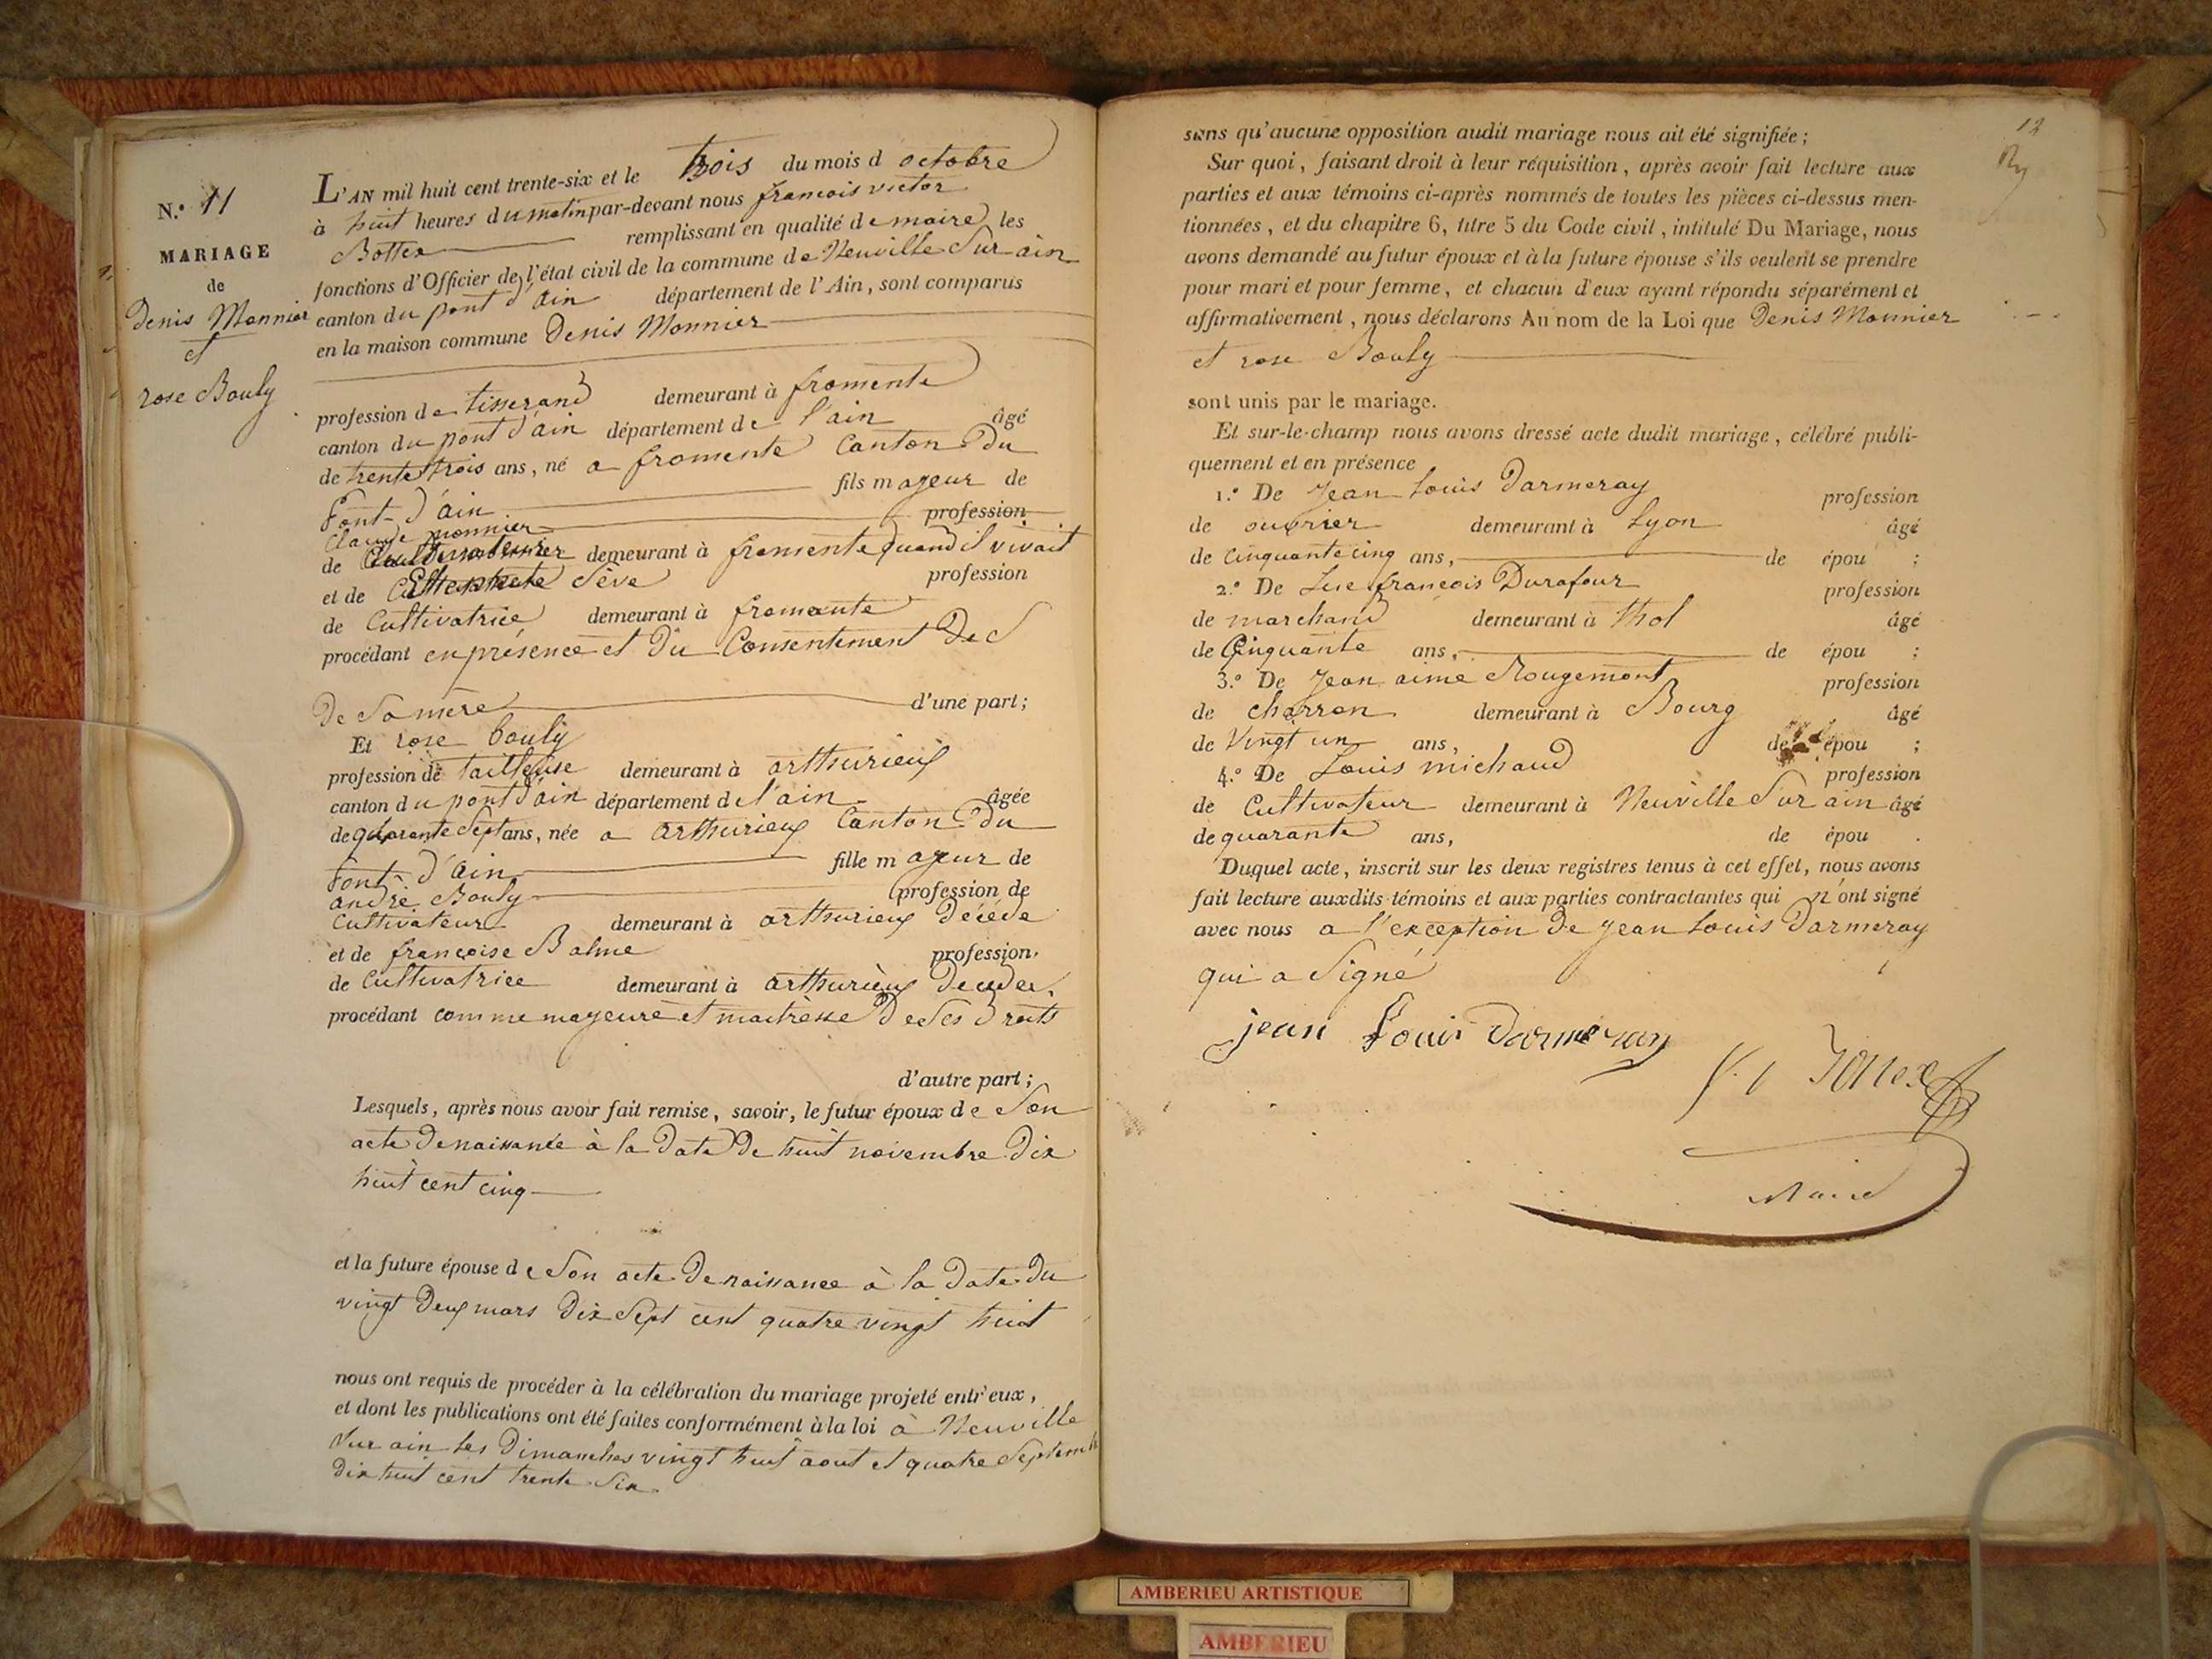 N.º 11
MARIAGE
de
Denis Monnier
et
rose Bouly
L'AN mil huit cent trente-six et le trois du mois d octobre
à huit heures du matin par-devant nous francois victor
Bottex remplissant en qualité de maire les
fonctions d'Officier de l'état civil de la commune de Neuville Sur ain
canton du pont d'ain département de l'Ain, sont comparus
en la maison commune Denis Monnier
profession de tisserand demeurant à fromente
canton du pont d'ain département de l'ain âgé
de trente trois ans, né a fromente Canton Du
Pont-d'ain fils majeur de
Claude monnier profession
de demeurant à fromente quand il vivait
et de Sève profession
de Cultivatrice demeurant à fromente
procédant en présence et Du Consentement De
De Sa mère d'une part;
Et rose bouly
profession de tailleuse demeurant à arthurieux
canton du pont d'ain département de l'ain âgée
de quarante Sept ans, née a arthurieux Canton Du
Pont-d'ain fille majeur de
andré Bouly profession de
Cultivateur demeurant à arthurieux Décédé
et de françoise Balme profession
de Cultivatrice demeurant à arthurieux Décédée
procédant comme mayeure et maitresse De Ses Droits
d'autre part;
Lesquels, après nous avoir fait remise, savoir, le futur époux de Son
acte De naissance à la Date De huit novembre Dix
huit cent cinq
et la future épouse de Son acte De naissance à la Date Du
vingt Deux mars Dix Sept cent quatre vingt huit
nous ont requis de procéder à la célébration du mariage projeté entr'eux,
et dont les publications ont été faites conformément à la loi à Neuville
Sur ain les Dimanches vingt huit aout et quatre Septemb
Dix huit cent trente Six.
12
sans qu'aucune opposition audit mariage nous ait été signifiée;
Sur quoi, faisant droit à leur réquisition, après avoir fait lecture aux
parties et aux témoins ci-après nommés de toutes les pièces ci-dessus men-
tionnées, et du chapitre 6, titre 5 du Code civil, intitulé Du Mariage, nous
avons demandé au futur époux et à la future épouse s'ils veulent se prendre
pour mari et pour femme, et chacun d'eux ayant répondu séparément et
affirmativement, nous déclarons Au nom de la Loi que Denis Monnier
et rose Bouly
sont unis par le mariage.
Et sur-le-champ nous avons dressé acte dudit mariage, célébré publi-
quement et en présence
1.º De Jean Louis Darmeray profession
de ouvrier demeurant à Lyon âgé
de cinquante cinq ans, de épou ;
2.º De Luc françois Durafour profession
de marchand demeurant à thol âgé
de Cinquante ans, de épou ;
3.º De Jean aimé Rougemont profession
de charron demeurant à Bourg âgé
de Vingt un ans, de épou ;
4.º De Louis michaud profession
de Cultivateur demeurant à Neuville Sur ain âgé
de quarante ans, de épou .
Duquel acte, inscrit sur les deux registres tenus à cet effet, nous avons
fait lecture auxdits témoins et aux parties contractantes qui n'ont signé
avec nous a l'exception De Jean Louis Darmeray
qui a Signé
jean Louis Darmeray
Maire
AMBERIEU ARTISTIQUE
AMBERIEU